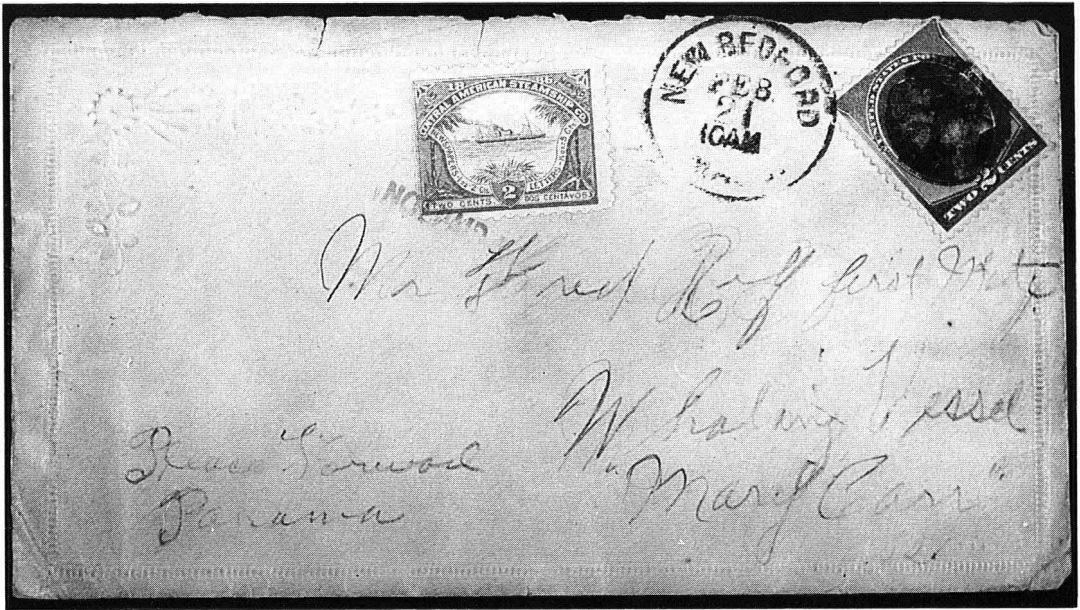 CENTRAL AMERICAN STEAMSHIP CO.
2
TWO CENTS DOS CENTAVOS
NEW BEDFORD
FEB
21
10AM
UNITED STATES
TWO 2 CENTS
Mr Fred Roff first Mate
Whaling Vessel
"Mary Carr"
Please Forward
Panama